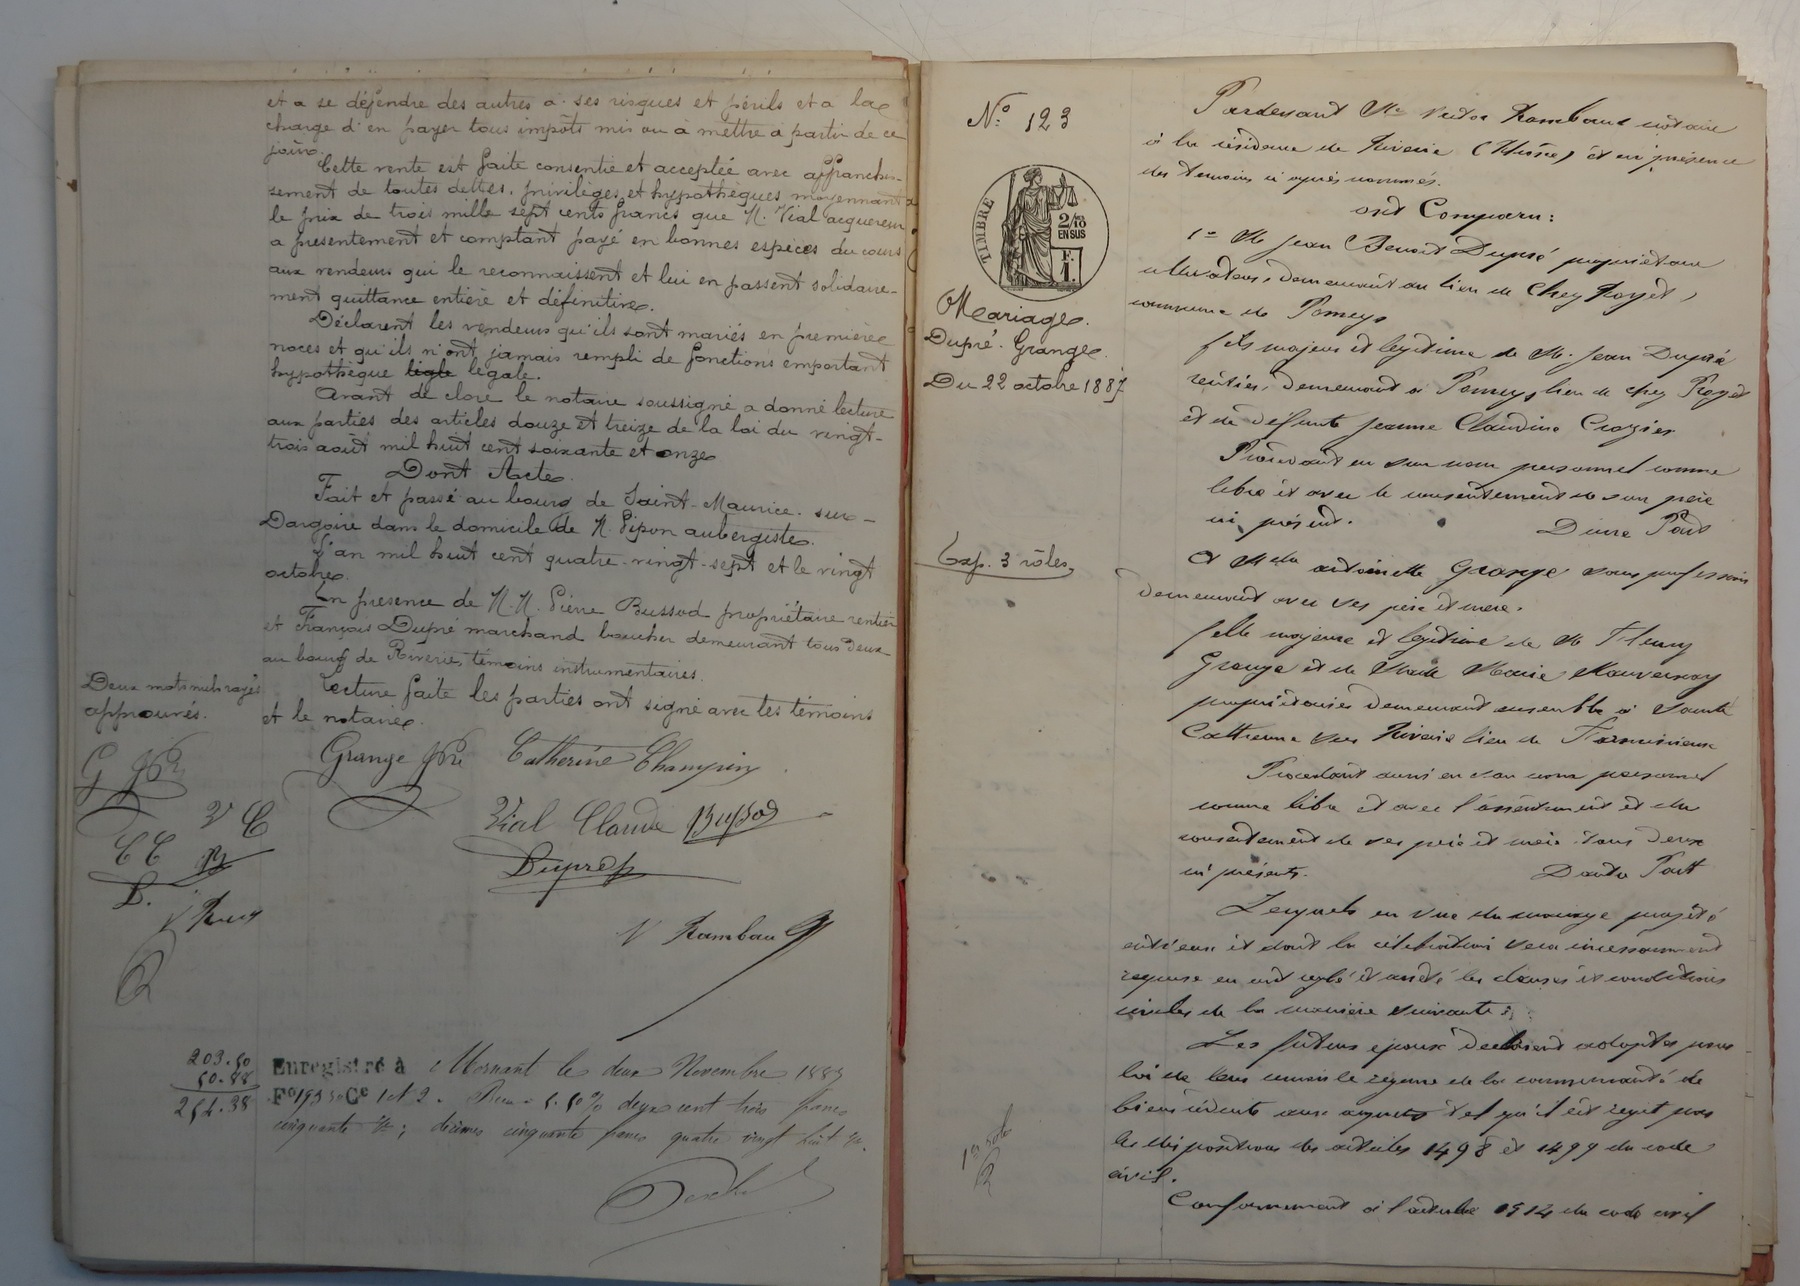 et a se défendre des autres a ses risques et périls et a la
charge d'en payer tous impôts mis ou à mettre a partir de ce
jour.
Cette vente est faite consentie et acceptée avec affranchis-
sement de toutes dettes, privilèges, et hypothèques moyennant
le prix de trois mille sept cents francs que M. Vial acquereur
a presentement et comptant payé en bonnes espèces du cours
aux vendeurs qui le reconnaissent et lui en passent solidaire-
ment quittance entière et définitive.
Déclarent les vendeurs qu'ils sont mariés en première
noces et qu'ils n'ont jamais rempli de fonctions emportant
hypothèque légale.
Avant de clore le notaire soussigné a donné lecture
aux parties des articles douze et treize de la loi du vingt-
trois août mil huit cent soixante et onze
Dont Acte.
Fait et passé au bourg de Saint-Maurice-sur-
Dargoire dans le domicile de M. Pipon aubergiste.
L'an mil huit cent quatre-vingt-sept et le vingt
octobre.
En presence de M.M. Pierre Bussod propriétaire rentier
et François Dupré marchand boucher demeurant tous deux
au bourg de Riverie, témoins instrumentaires.
Lecture faite les parties ont signé avec les témoins
et le notaire.
Deux mots nuls rayés
approuvés.
Grange Catherine Champin
Vial Claude Bussod
Dupré
G
V C
C C B
D.
V Ramb
V Rambaud
203.50
50.88
254.38
Enregistré à Mornant le deux Novembre 1887
Fo 195 Ce 1 et 2. Reçu 5.50% deux cent trois francs
cinquante c; décimes cinquante francs quatre vingt huit c.
No 123
TIMBRE
2/10
EN SUS
F.
1.
Mariage.
Dupré-Grange.
Du 22 octobre 1887
Exp. 3 rôles.
1er rôle
Pardevant Me Victor Rambaud notaire
à la résidence de Riverie (Rhône) et en présence
des témoins ci après nommés.
ont Comparu:
1o M Jean Benoit Dupré propriétaire
cultivateur, demeurant au lieu de Chez Royet,
commune de Pomeys
fils majeur et légitime de M. Jean Dupré
rentier, demeurant à Pomeys lieu de chez Royet
et de défunte Jeanne Claudine Crozier
Procédant en son nom personnel comme
libre et avec le consentement de son père
ici présent. D'une Part
Et Melle antoinette Grange sans profession
demeurant avec ses père et mère.
fille majeure et légitime de M Fleury
Grange et de Made Marie Mauvernay
propriétaires demeurant ensemble à Sainte
Catherine sous Riverie lieu de
Procédant aussi en son nom personnel
comme libre et avec l'assentiment et du
consentement de ses père et mère tous deux
ici présents. D'autre Part
Lesquels en vue du mariage projeté
entr'eux et dont la célébration sera incessamment
requise en ont reglé et arrêté les clauses et conditions
civiles de la manière suivante:
Les futurs époux déclarent adopter pour
loi de leur union le régime de la communauté de
biens réduite aux acquets tel qu'il est régit par
les dispositions des articles 1498 et 1499 du code
civil.
Conformement à l'article 1514 du code civil